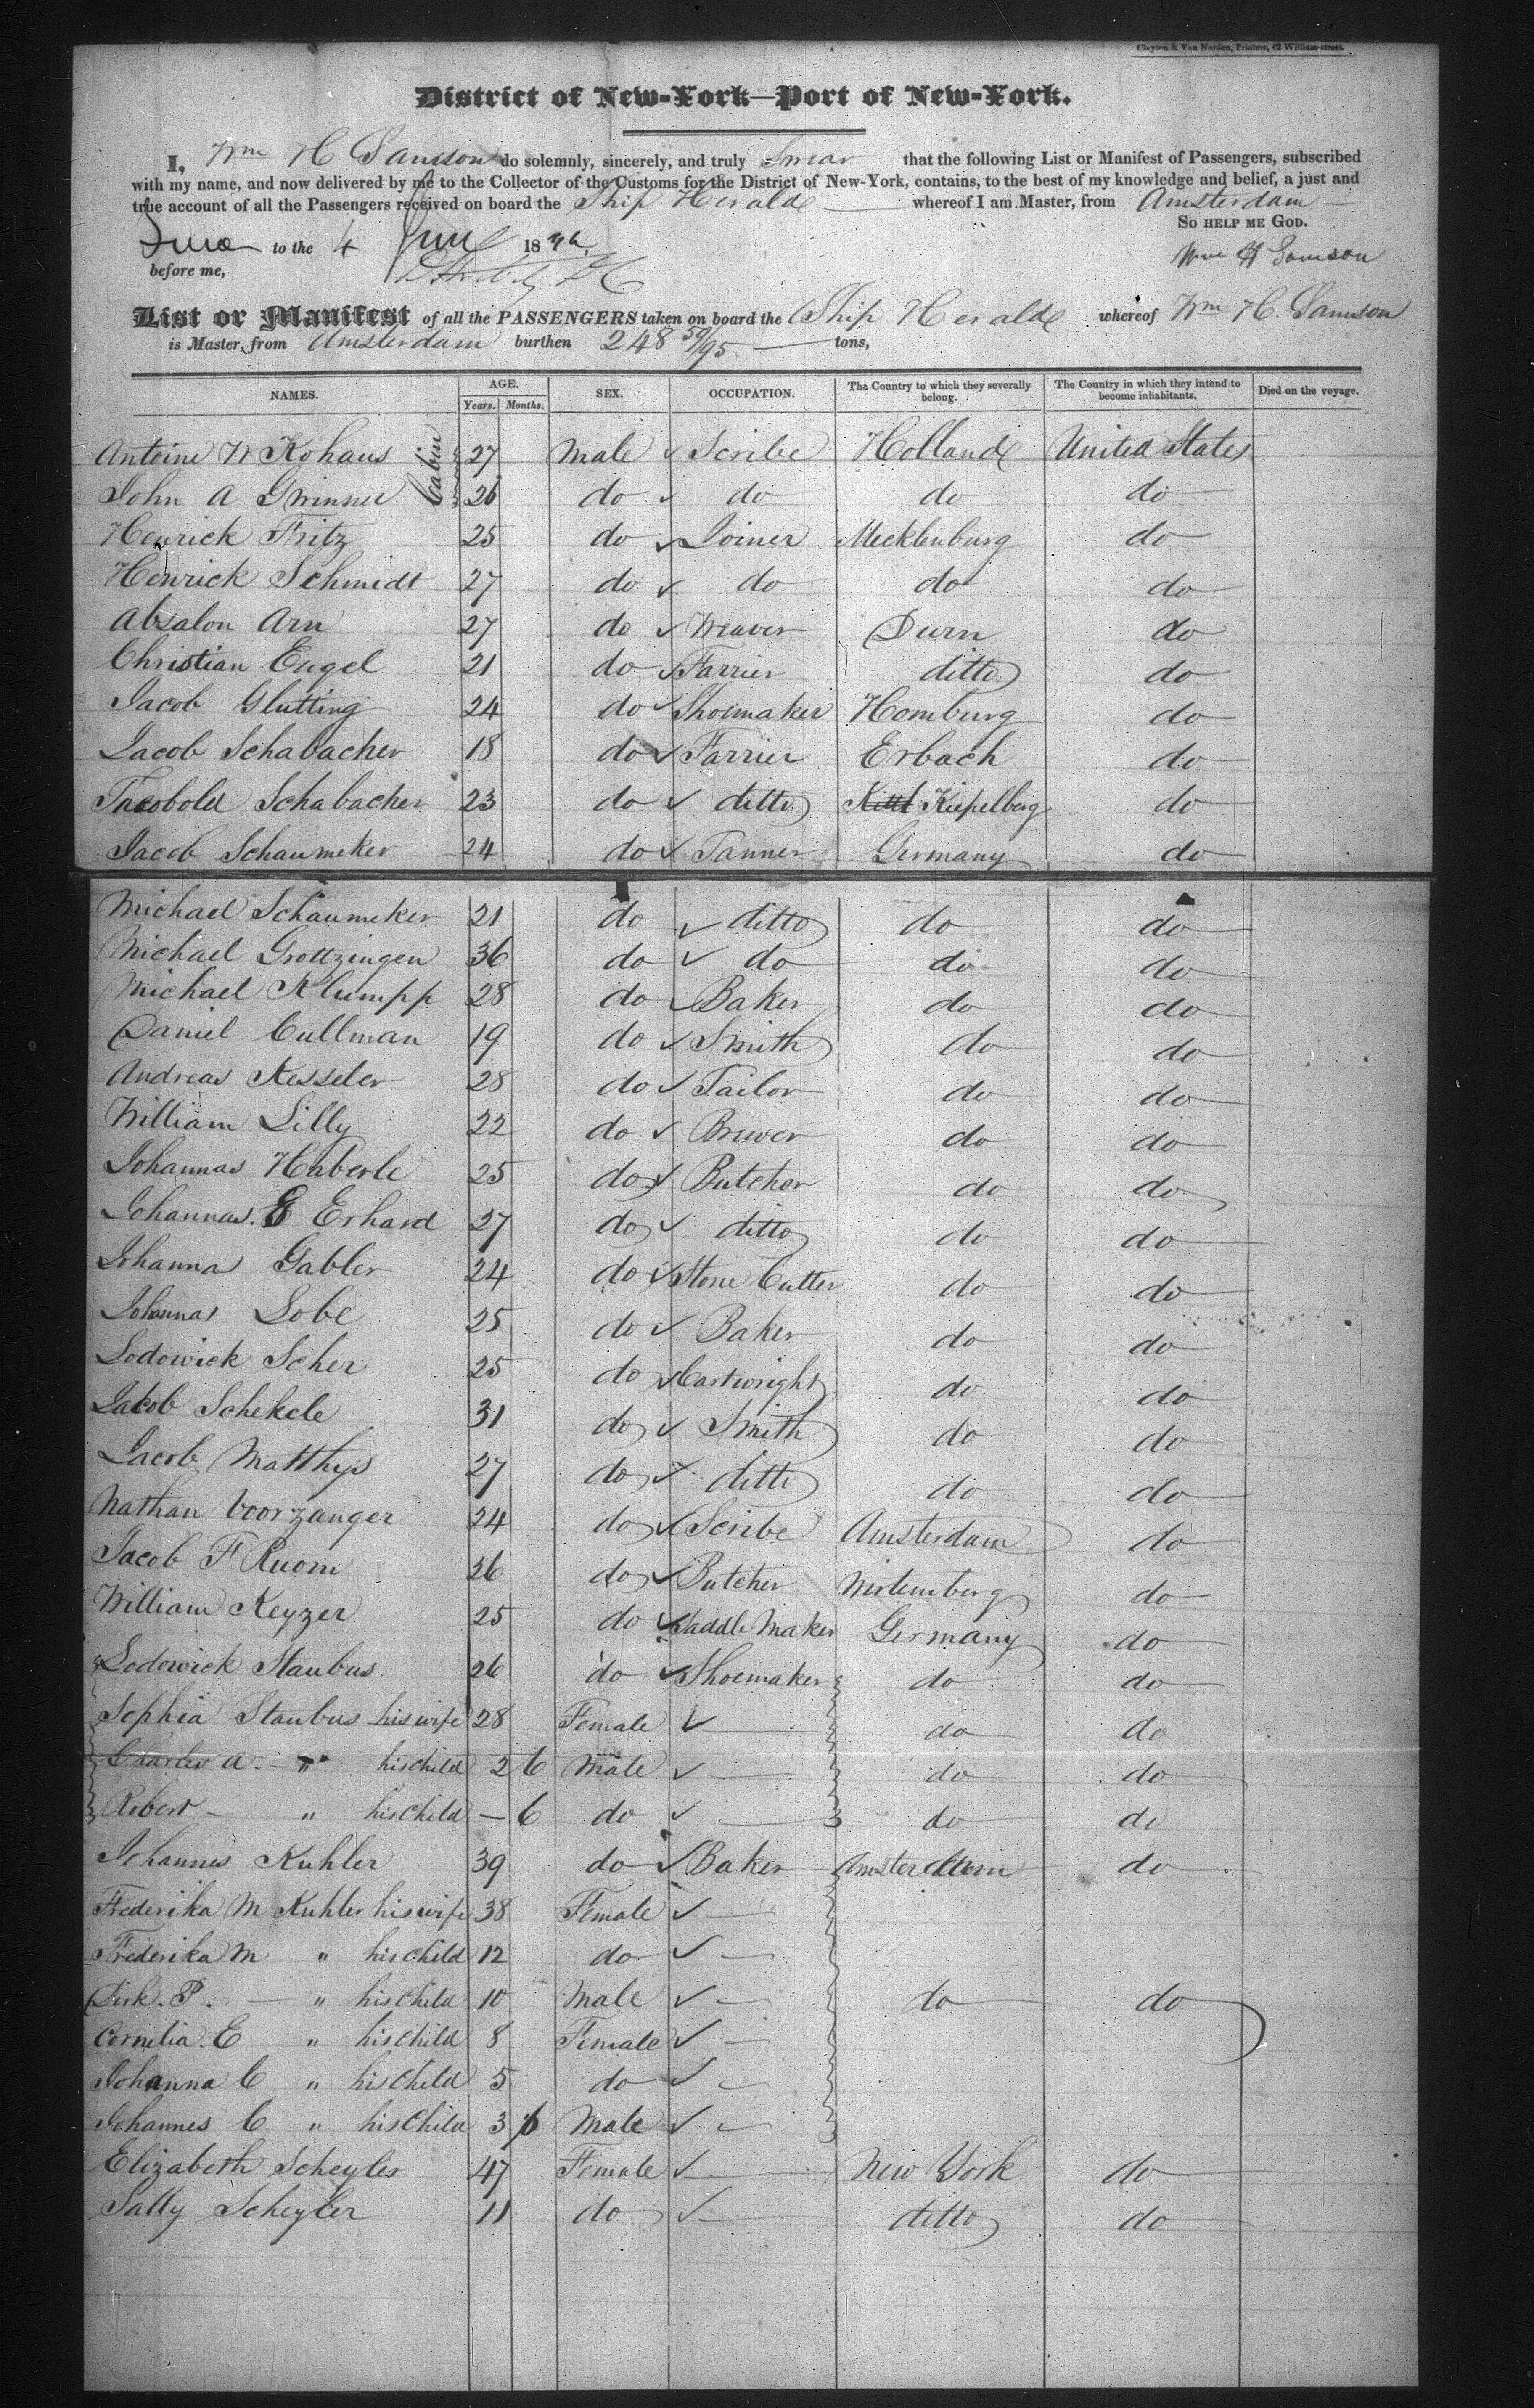 Clayton & Van Norden, Printers, 42 William-street.
District of New-York—Port of New-York.
I, Wm H Samson do solemnly, sincerely, and truly Swear that the following List or Manifest of Passengers, subscribed
with my name, and now delivered by me to the Collector of the Customs for the District of New-York, contains, to the best of my knowledge and belief, a just and
true account of all the Passengers received on board the Ship Herald whereof I am Master, from Amsterdam
So help me God.
to the 4 June 18
before me,
Wm H Samson
List or Manifest of all the PASSENGERS taken on board the Ship Herald whereof Wm H. Samson
is Master, from Amsterdam burthen 248 50/95 tons,
NAMES. AGE. Years. Months. SEX. OCCUPATION. The Country to which they severally belong. The Country in which they intend to become inhabitants. Died on the voyage.
Cabin
Antoine W Kohaus 27 Male Scribe Holland United States
John A Gwinner 26 do do do do
Henrick Fritz 25 do Joiner Mecklenburg do
Henrick Schmidt 27 do do do do
Absalon Arn 27 do Weaver Durn do
Christian Engel 21 do Farrier ditto do
Jacob Glutting 24 do Shoemaker Homburg do
Jacob Schabacher 18 do Farrier Erbach do
Theobold Schabacher 23 do ditto Kiepelberg do
Jacob Schaumeker 24 do Tanner Germany do
Michael Schaumeker 21 do ditto do do
Michael Grottzingen 36 do do do do
Michael Klumpp 28 do Baker do do
Daniel Cullman 19 do Smith do do
Andreas Kesseler 28 do Tailor do do
William Lilly 22 do Brewer do do
Johannas Haberle 25 do Butcher do do
Johannas E Erhard 27 do ditto do do
Johanna Gabler 24 do Stone Cutter do do
Johannas Lobe 25 do Baker do do
Lodowick Scher 25 do Cartwright do do
Jakob Schekele 31 do Smith do do
Jacob Matthys 27 do ditto do do
Nathan Voorzanger 24 do Scribe Amsterdam do
Jacob F Ruom 36 do Butcher Wirtemberg do
William Keyzer 25 do Saddle Maker Germany do
Lodowick Staubus 26 do Shoemaker do do
Sophia Staubus his wife 28 Female do do
Charles A. " his child 2 6 Male do do
Robert " his child — 6 do do do
Johannes Kuhler 39 do Baker Amsterdam do
Frederika M Kuhler his wife 38 Female
Frederika M " his child 12 do
Dirk. P. " his child 10 Male do do
Cornelia. E " his child 8 Female
Johanna C " his child 5 do
Johannes C " his child 3 6 Male
Elizabeth Scheyler 47 Female New York do
Sally Scheyler 11 do ditto do